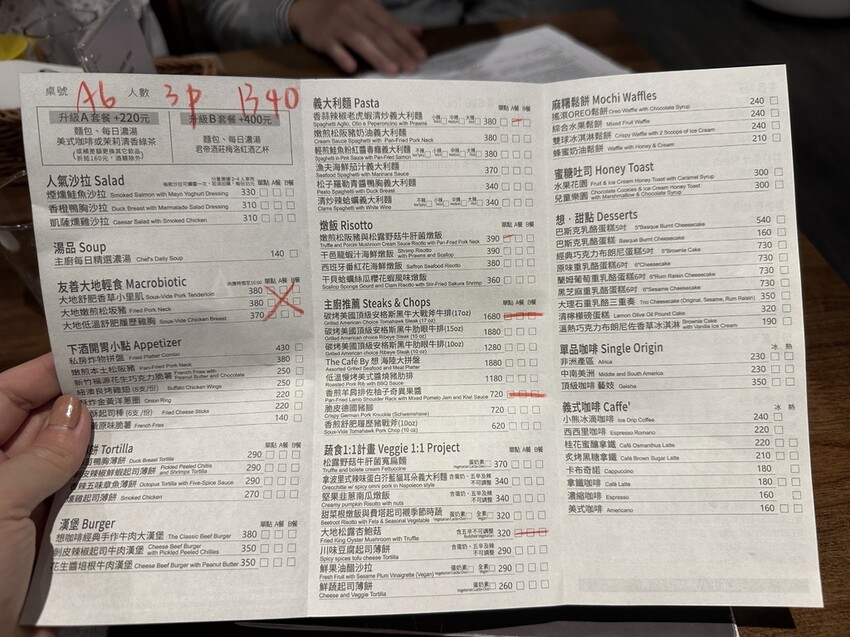 桌號 A6 人數 3P 1340
升級A套餐+220元
麵包、每日濃湯
美式咖啡或茉莉清香綠茶
升級B套餐+400元
麵包、每日濃湯
人氣沙拉 Salad
單點 A餐 B餐
煙燻鮭魚沙拉 Smoked Salmon with Mayo Yoghurt Dressing 330
香橙鴨胸沙拉 Duck Breast with Marmalade Salad Dressing 310
凱薩燻雞沙拉 Caesar Salad with Smoked Chicken 310
湯品 Soup
主廚每日精選濃湯 Chef's Daily Soup 140
友善大地輕食 Macrobiotic
單點 A餐 B餐
大地舒肥香草小里肌 Sous-Vide Pork Tenderloin 380
大地嫩煎松阪豬 Fried Pork Neck 380
大地低溫舒肥履歷雞胸 Sous-Vide Chicken Breast 370
下酒開胃小點 Appetizer
私房炸物拼盤 Fried Platter Combo 430
嫩煎本土松阪豬 Pan-Fried Pork Neck 380
新竹福源花生巧克力脆薯 French Fries with Peanut Butter and Chocolate 250
紐澳良烤雞翅 (8支/份) Buffalo Chicken Wings 250
酥炸金黃洋蔥圈 Onion Ring 220
酥起司棒 (6支/份) Fried Cheese Sticks 220
原味脆薯 French Fries 140
餅 Tortilla
鴨胸薄餅 Duck Breast Tortilla 290
皮辣椒鮮蝦起司薄餅 Pickled Peeled Chillis and Shrimps Tortilla 290
辣五味章魚薄餅 Octopus Tortilla with Five-Spice Sauce 290
燻雞起司薄餅 Smoked Chicken 270
漢堡 Burger
單點 A餐 B餐
想咖啡經典手作牛肉大漢堡 The Classic Beef Burger 380
剝皮辣椒起司牛肉漢堡 Cheese Beef Burger with Pickled Peeled Chillies 350
花生醬培根牛肉漢堡 Cheese Beef Burger with Peanut Butter 350
義大利麵 Pasta
單點 A餐 B餐
香蒜辣椒老虎蝦清炒義大利麵 380
Spaghetti Aglio, Olio e Peperoncino with Prawns
嫩煎松阪豬奶油義大利麵 380
Cream Sauce Spaghetti with Pan-Fried Pork Neck
輕煎鮭魚粉紅醬專寵義大利麵 380
Spaghetti in Pink Sauce with Pan-Fried Salmon
漁夫海鮮茄汁義大利麵 370
Seafood Spaghetti with Marinara Sauce
松子羅勒青醬鴨胸義大利麵 340
Pesto Spaghetti with Duck Breast
清炒辣蛤蠣義大利麵 340
Clams Spaghetti with White Wine
燉飯 Risotto
單點 A餐 B餐
嫩煎松阪豬與松露野菇牛肝菌燉飯 390
Truffle and Porcini Mushroom Cream Sauce Risotto with Pan-Fried Pork Neck
干邑龍蝦汁海鮮燉飯 Shrimp Risotto with Prawns and Scallop 390
西班牙番紅花海鮮燉飯 Saffron Seafood Risotto 380
干貝蛤蠣絲瓜櫻花蝦風味燉飯 360
Scallop Sponge Gourd and Clam Risotto with Stir-Fried Sakura Shrimp
主廚推薦 Steaks & Chops
單點 A餐 B餐
碳烤美國頂級安格斯黑牛大戰斧牛排(17oz) 1680
Grilled American Choice Tomahawk Steak (17 oz)
碳烤美國頂級安格斯黑牛肋眼牛排(15oz) 1880
Grilled American choice Ribeye Steak (15 oz)
碳烤美國頂級安格斯黑牛肋眼牛排(10oz) 1280
Grilled American choice Ribeye Steak (10 oz)
The Café By 想 海陸大拼盤 1880
Assorted Grilled Seafood and Meat Platter
低溫慢烤美式醬燒豬肋排 1180
Roasted Pork Rib with BBQ Sauce
香煎羊肩排佐柚子奇異果醬 720
Pan-Fried Lamb Shoulder Rack with Mixed Pomelo Jam and Kiwi Sauce
脆皮德國豬腳 720
Crispy German Pork Knuckle (Schweinshaxe)
香煎舒肥履歷豬戰斧(10oz) 620
Sous-Vide Tomahawk Pork Chop (10 oz)
蔬食1:1計畫 Veggie 1:1 Project
單點 A餐 B餐
松露野菇牛肝菌寬扁麵 370
Truffle and bolete cream Fettuccine
拿波里式辣味蛋白芥藍貓耳朵義大利麵 340
Orecchiette w/ spicy omni pork in Napoleon style
堅果韭蔥南瓜燉飯 340
Creamy pumpkin Risotto with nuts
甜菜根燉飯與費塔起司襯季節時蔬 320
Beetroot Risotto with Feta & Seasonal Vegetable
大地松露杏鮑菇 320
Fried King Oyster Mushroom with Truffle
川味豆腐起司薄餅 290
Spicy spices tofu cheese Tortilla
鮮果油醋沙拉 290
Fresh Fruit with Sesame Plum Vinaigrette (Vegan)
鮮蔬起司薄餅 260
Cheese and Veggie Tortilla
麻糬鬆餅 Mochi Waffles
搖滾OREO鬆餅 Oreo Waffle with Chocolate Syrup 240
綜合水果鬆餅 Mixed Fruit Waffle 240
雙球冰淇淋鬆餅 Crispy Waffle with 2 Scoops of Ice Cream 240
蜂蜜奶油鬆餅 Waffle with Honey 210
蜜糖吐司 Honey Toast
水果花園 Fruit & Ice Cream Honey Toast with Caramel Syrup 300
兒童樂園 Chocolate Cookies & Ice Cream Honey Toast with Marshmallow & Chocolate Syrup 300
想・甜點 Desserts
巴斯克乳酪蛋糕5吋 5"Basque Burnt Cheesecake 540
巴斯克乳酪蛋糕 Basque Burnt Cheesecake 160
經典巧克力布朗尼蛋糕5吋 5"Brownie Cake 730
原味重乳酪蛋糕6吋 6"Cheesecake 730
蘭姆葡萄重乳酪蛋糕6吋 6"Rum Raisin Cheesecake 730
黑芝麻重乳酪蛋糕6吋 6"Sesame Cheesecake 730
大理石重乳酪三重奏 Trio Cheesecake (Original, Sesame, Rum Raisin) 350
清檸檬磅蛋糕 Lemon Olive Oil Pound Cake 320
溫熱巧克力布朗尼佐香草冰淇淋 Brownie Cake with Vanilla Ice Cream 190
單品咖啡 Single Origin
冰 熱
非洲產區 Africa 230
中南美洲 Middle and South America 230
頂級咖啡 藝妓 Geisha 350
義式咖啡 Caffe'
冰 熱
小熊冰滴咖啡 Ice Drip Coffee 240
西西里咖啡 Espresso Romano 220
桂花蜜釀拿鐵 Café Osmanthus Latte 220
炙烤黑糖拿鐵 Café Brown Sugar Latte 210
卡布奇諾 Cappuccino 180
拿鐵咖啡 Café Latte 180
濃縮咖啡 Espresso 160
美式咖啡 Americano 160